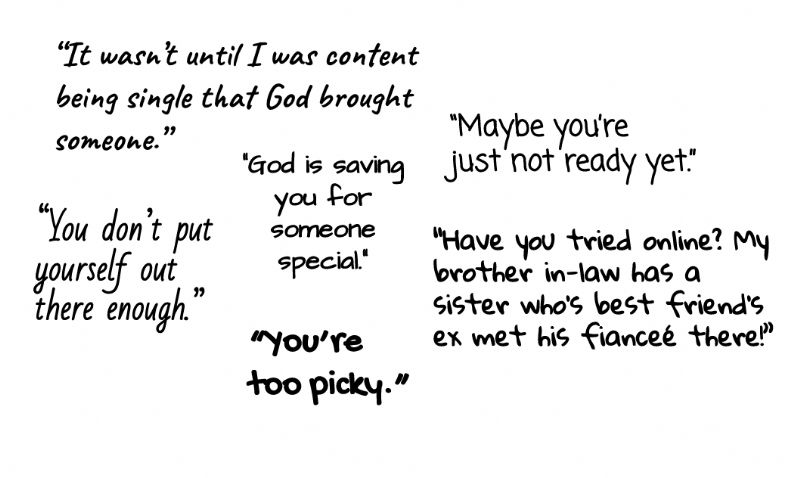 “It wasn’t until I was content
being single that God brought
someone.”
"Maybe you're
just not ready yet."
"God is saving
you for
someone
special."
“You don’t put
yourself out
there enough.”
"Have you tried online? My
brother in-law has a
sister who's best friend's
ex met his fianceé there!”
“You’re
too picky.”